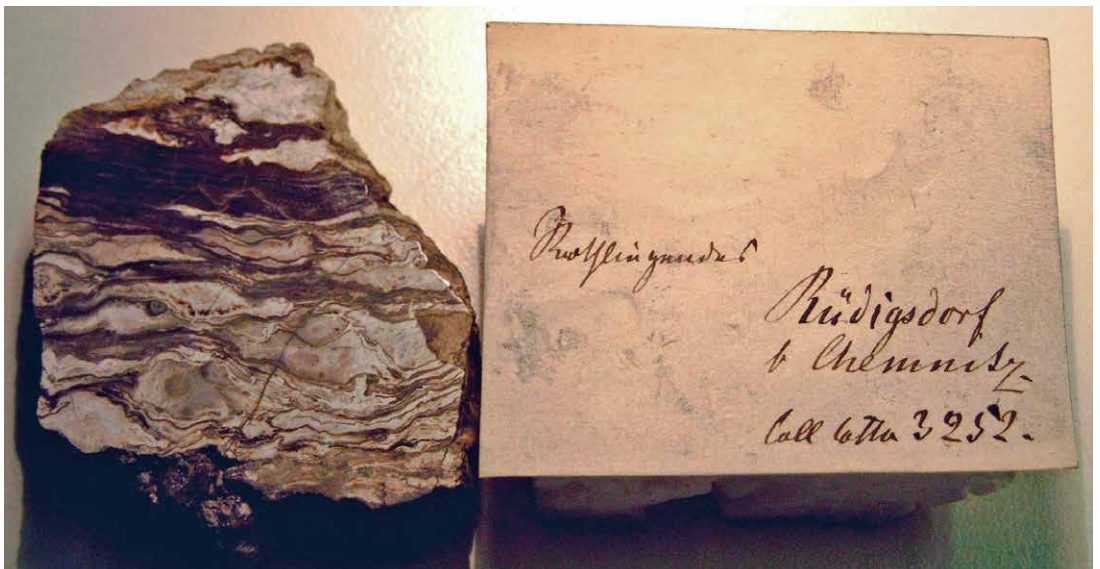 Rothliegendes
Rüdigsdorf
b Chemnitz.
Coll Cotta 3252.